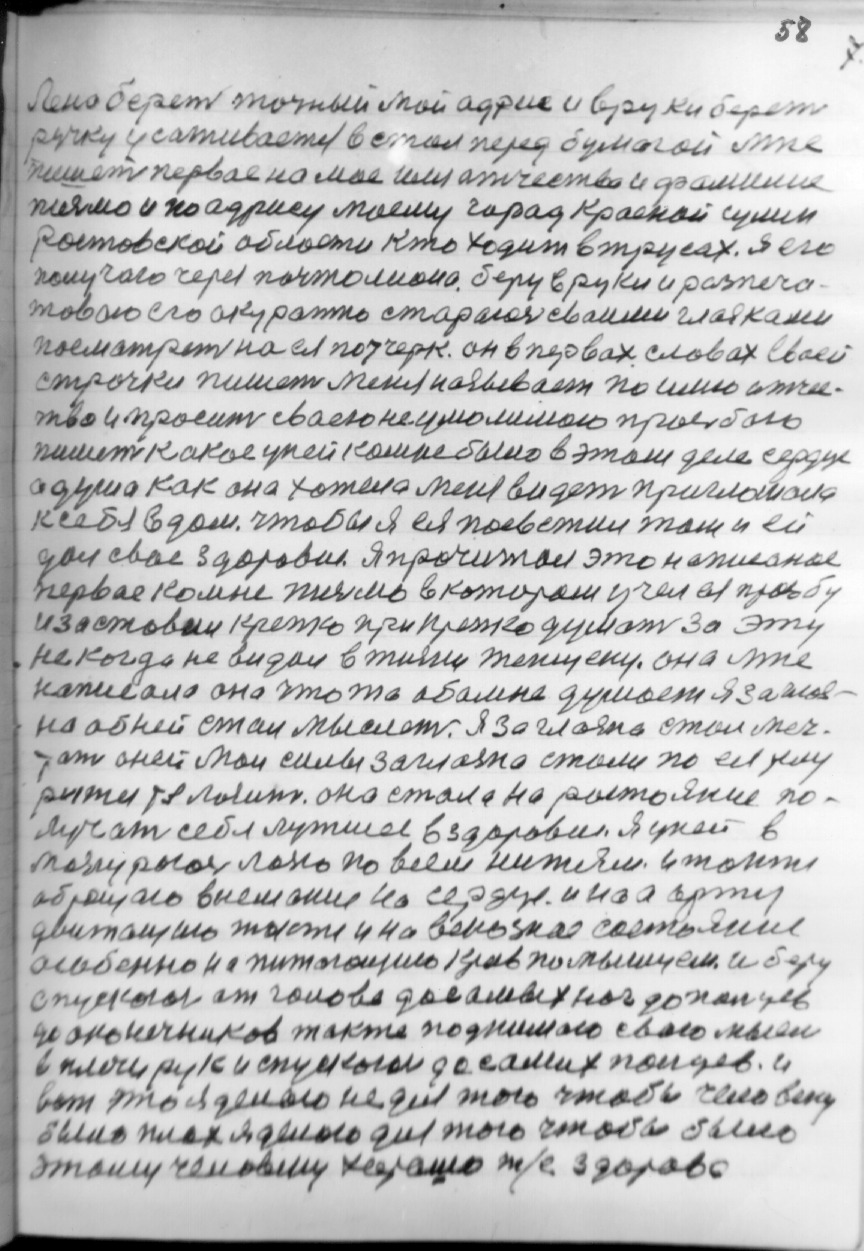 58
Лена берет точный мой адрис и вруки берет
ручку усаживается встол перед бумагой мне
пишет первае на мае имя отчества и фамилие
письмо и по адрису моему город Красной сулин
Ростовской области кто ходит втрусах. я его
получаю через почтолиона. беру вруки и распеча-
товаю его акуратно стараюся сваими глазками
посматрет на ея почерк. он впервах словах своей
строчки пишет меня называет по имю отче-
тво и просит сваею неумолимою прозбаю
пишет какое уней комне было вэтом деле сердце
а душа как она хотела меня видет приглошала
ксебя вдом. чтобы я ея посветил там и ей
дал свае здоровия. Я прочитал это написаное
первае комне письмо вкотором учел ея прозбу
изаставил крепко при крепко думат за эту
некогда не видал вжизни женщену. она мне
написала она что та обомне думает я заглаз-
на обней стал мыслет. Я заглазна стал меч-
тат оней мои силы заглазна стали по ея
она стала на ростояние по-
лучат себя лутшее вздоровия. я уней в
мозгу роюся лазию по всем нитям. и также
обращаю внемание на сердце. и на аорту
двигающию части и на венозное состояние
особенно на питающию кров по мышцем. и беру
спускаюся от голове досамых ног допальцев
до оконечников также поднимаю сваю мысл
в плечи рук и спускаюся досамих пальцев. и
вот это я делаю не для того чтобы человеку
было плох я делаю для того чтобы было
этому человеку хорашо т/е здорово